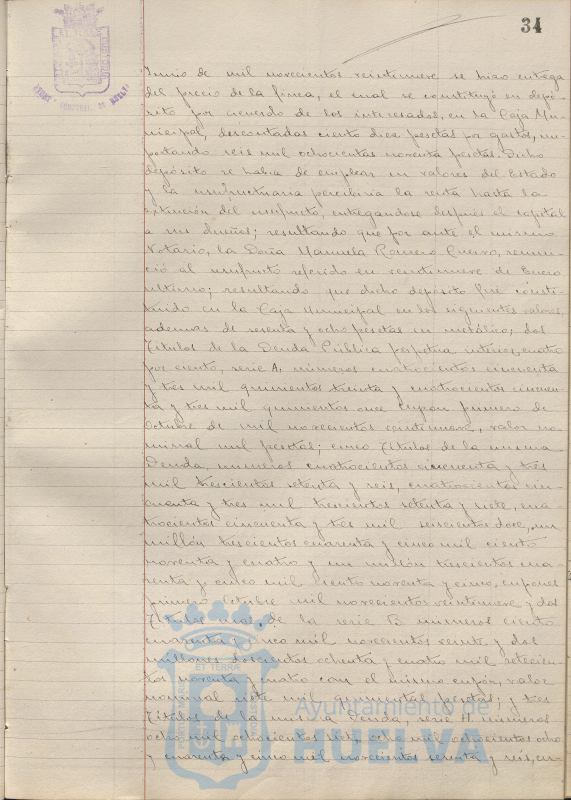 34
Junio de mil novecientos veintinueve se hizo entrega
del precio de la finca, el cual se constituyó en depó-
sito por acuerdo de los interesados, en la Caja Mu-
nicipal, descontadas ciento diez pesetas por gastos, im-
portando seis mil ochocientas noventa pesetas. Dicho
depósito se habia de emplear en valores del Estado
y la usufructuaria percibiria la renta hasta la
extinción del usufructo, entregandose despues el capital
a sus dueños; resultando que por ante el mismo
Notario, la Doña Manuela Romero Cuervo, renun-
ció al usufructo referido en veintinueve de Enero
ultimo; resultando que dicho deposito fué consti-
tuido en la Caja Municipal en los siguientes valores,
ademas de sesenta y ocho pesetas en metálico; dos
Titulos de la Deuda Pública perpetua interior, cuatro
por ciento, serie A, numeros cuatrocientos cincuenta
y tres mil quinientos treinta y cuatrocientos cincuen-
ta y tres mil quinientos once cupon primero de
Octubre de mil novecientos veintinueve, valor no-
minal mil pesetas; cinco Titulos de la misma
Deuda, numeros cuatrocientos cincuenta y tres
mil trescientos setenta y seis, cuatrocientos cin-
cuenta y tres mil trescientos setenta y siete, cua-
trocientos cincuenta y tres mil seiscientos doce, un
millón trescientos cuarenta y cinco mil ciento
noventa y cuatro y un millón trescientos cua-
renta y cinco mil ciento noventa y cinco, cupones
primero Octubre mil novecientos veintinueve y dos
Titulos mas, de la serie B numeros ciento
cuarenta y cinco mil novecientos veinte y dos
millones doscientos ochenta y cuatro mil setecien-
tos noventa y cuatro con el mismo cupón, valor
nominal siete mil quinientas pesetas; y tres
Titulos de la misma Deuda, serie H. numeros
ocho mil ochocientos siete, ocho mil ochocientos ocho
y cuarenta y cinco mil novecientos setenta y seis, cu-
Ayuntamiento de
HUELVA